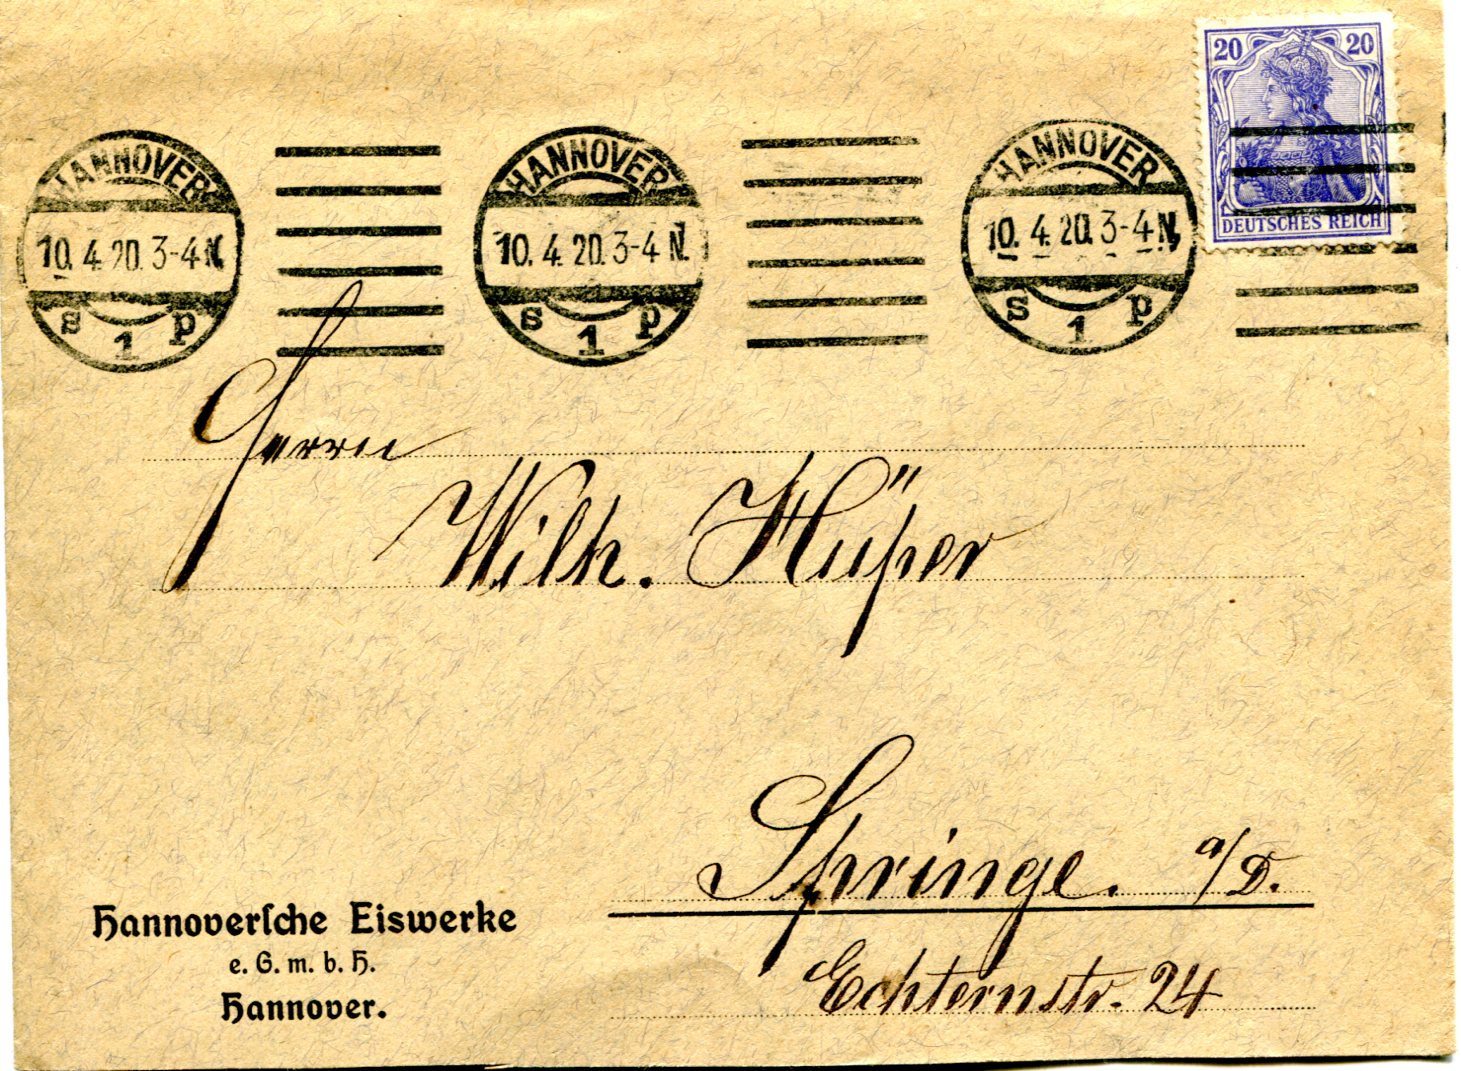 20 20
DEUTSCHES REICH
HANNOVER
10. 4. 20. 3-4 N.
s 1 p
HANNOVER
10. 4. 20. 3-4 N.
s 1 p
HANNOVER
10. 4. 20. 3-4 N.
s 1 p
Herrn
Wilh. Hüper
Springe. a/D.
Echternstr. 24
Hannoverſche Eiswerke
e. G. m. b. H.
Hannover.